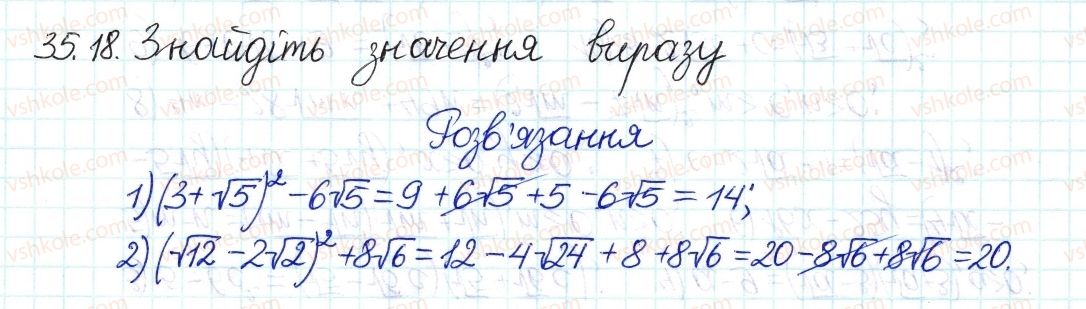 35.18. Знайдіть значення виразу
Розв'язання
1) (3+√5)² - 6√5 = 9 + 6√5 + 5 - 6√5 = 14;
2) (√12 - 2√2)² + 8√6 = 12 - 4√24 + 8 + 8√6 = 20 - 8√6 + 8√6 = 20.